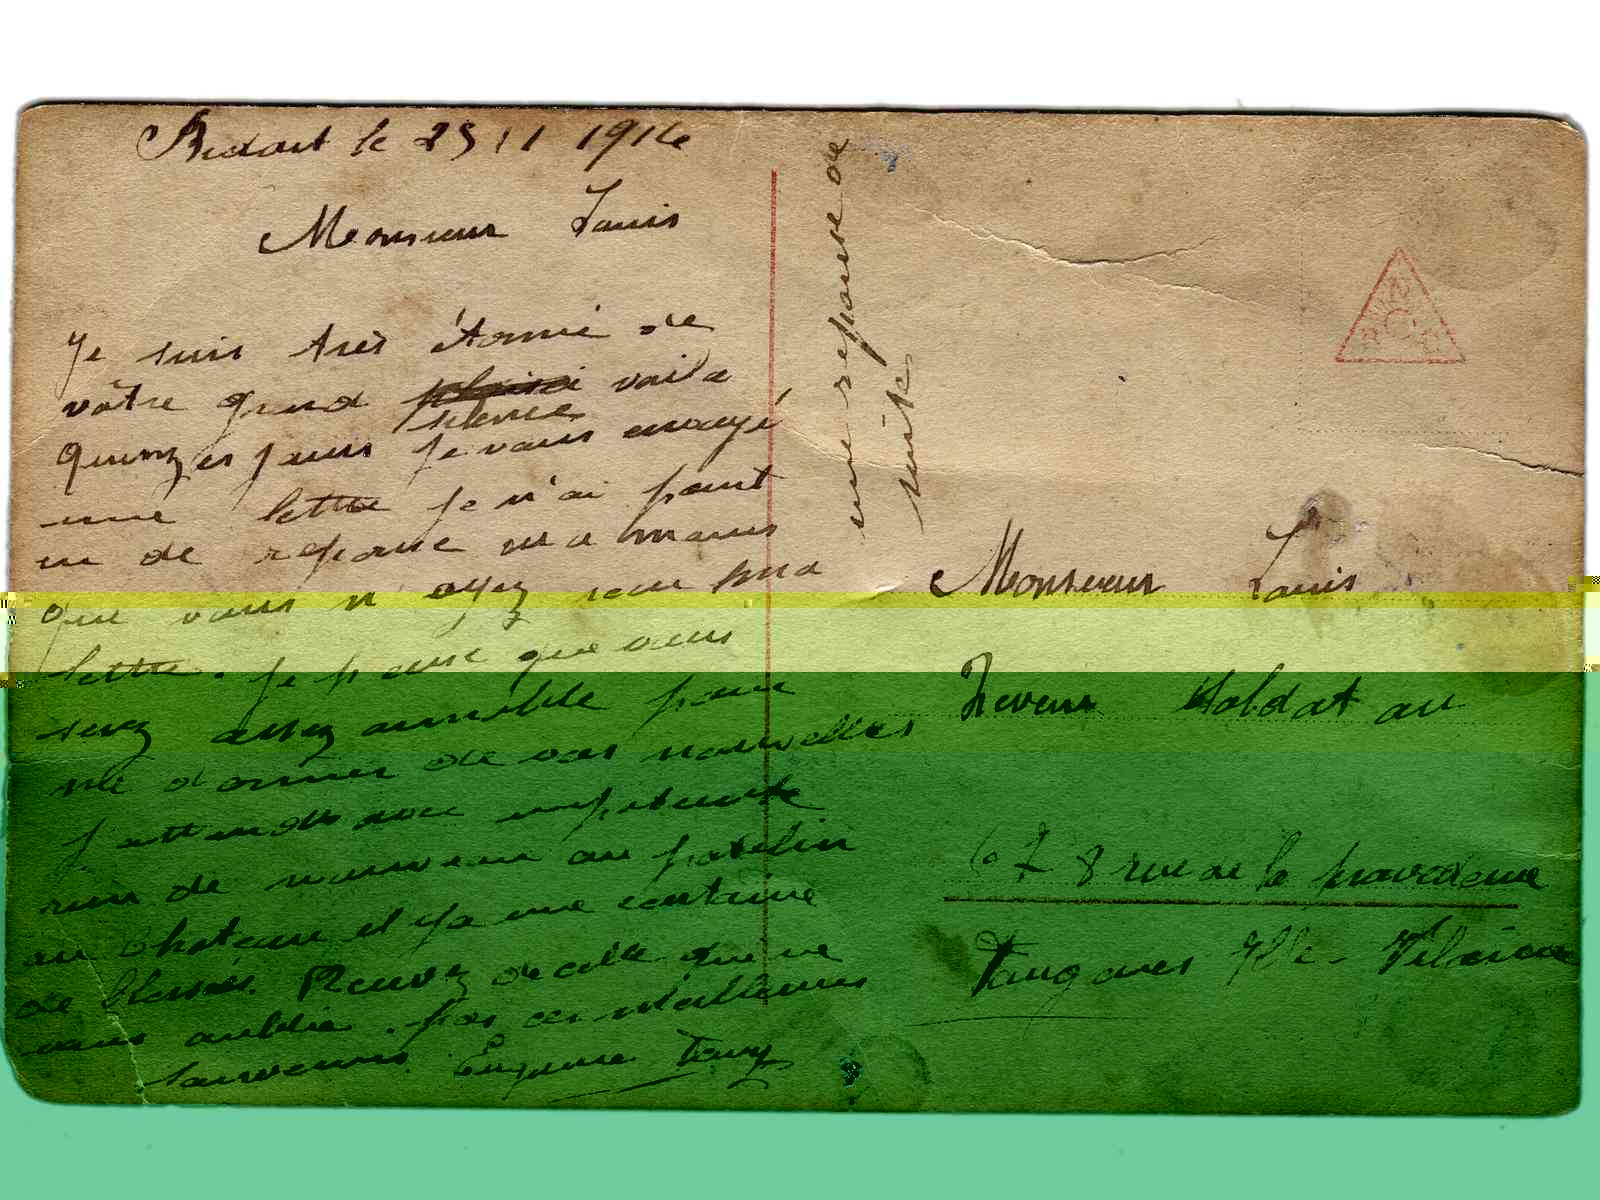 le 25 11 1914
Monsieur Louis
Je suis très étonné de
vôtre grand voila
silence
quinzes jours je vous envoyé
une lettre je n'ai point
eu de reponse a moins
que vous n'ayez reçu ma
lettre. Je pense que vous
serez assez aimable pour
me donner de vos nouvelles
J'attends avec impatience
rien de nouveau au patelin
au Chateau il y a une centaine
de blessés. Recevez de celle qui ne
vous oublie pas ces meilleurs
souvenirs Eugenie
une reponse de
suite
Monsieur Louis
Soldat au
8 rue de la providence
Fougeres Ille-Vilaine